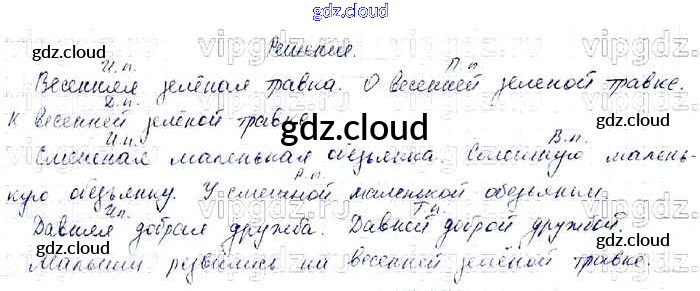 gdz.cloud
gdz.cloud vipgdz.ru Решения. vipgdz.ru gdz.cloud
И.п. П.п.
Весенняя зелёная травка. О весенней зеленой травке.
Д.п.
К весенней зелёной травке.
gdz.cloud
И.п. В.п.
Смешная маленькая обезьянка. Смешную малень-
Р.п.
кую обезьянку. У смешной маленькой обезьянки.
И.п. Т.п.
Давняя добрая дружба. Давней доброй дружбой.
gdz.cloud gdz.cloud
Малыши резвились на весенней зелёной травке.